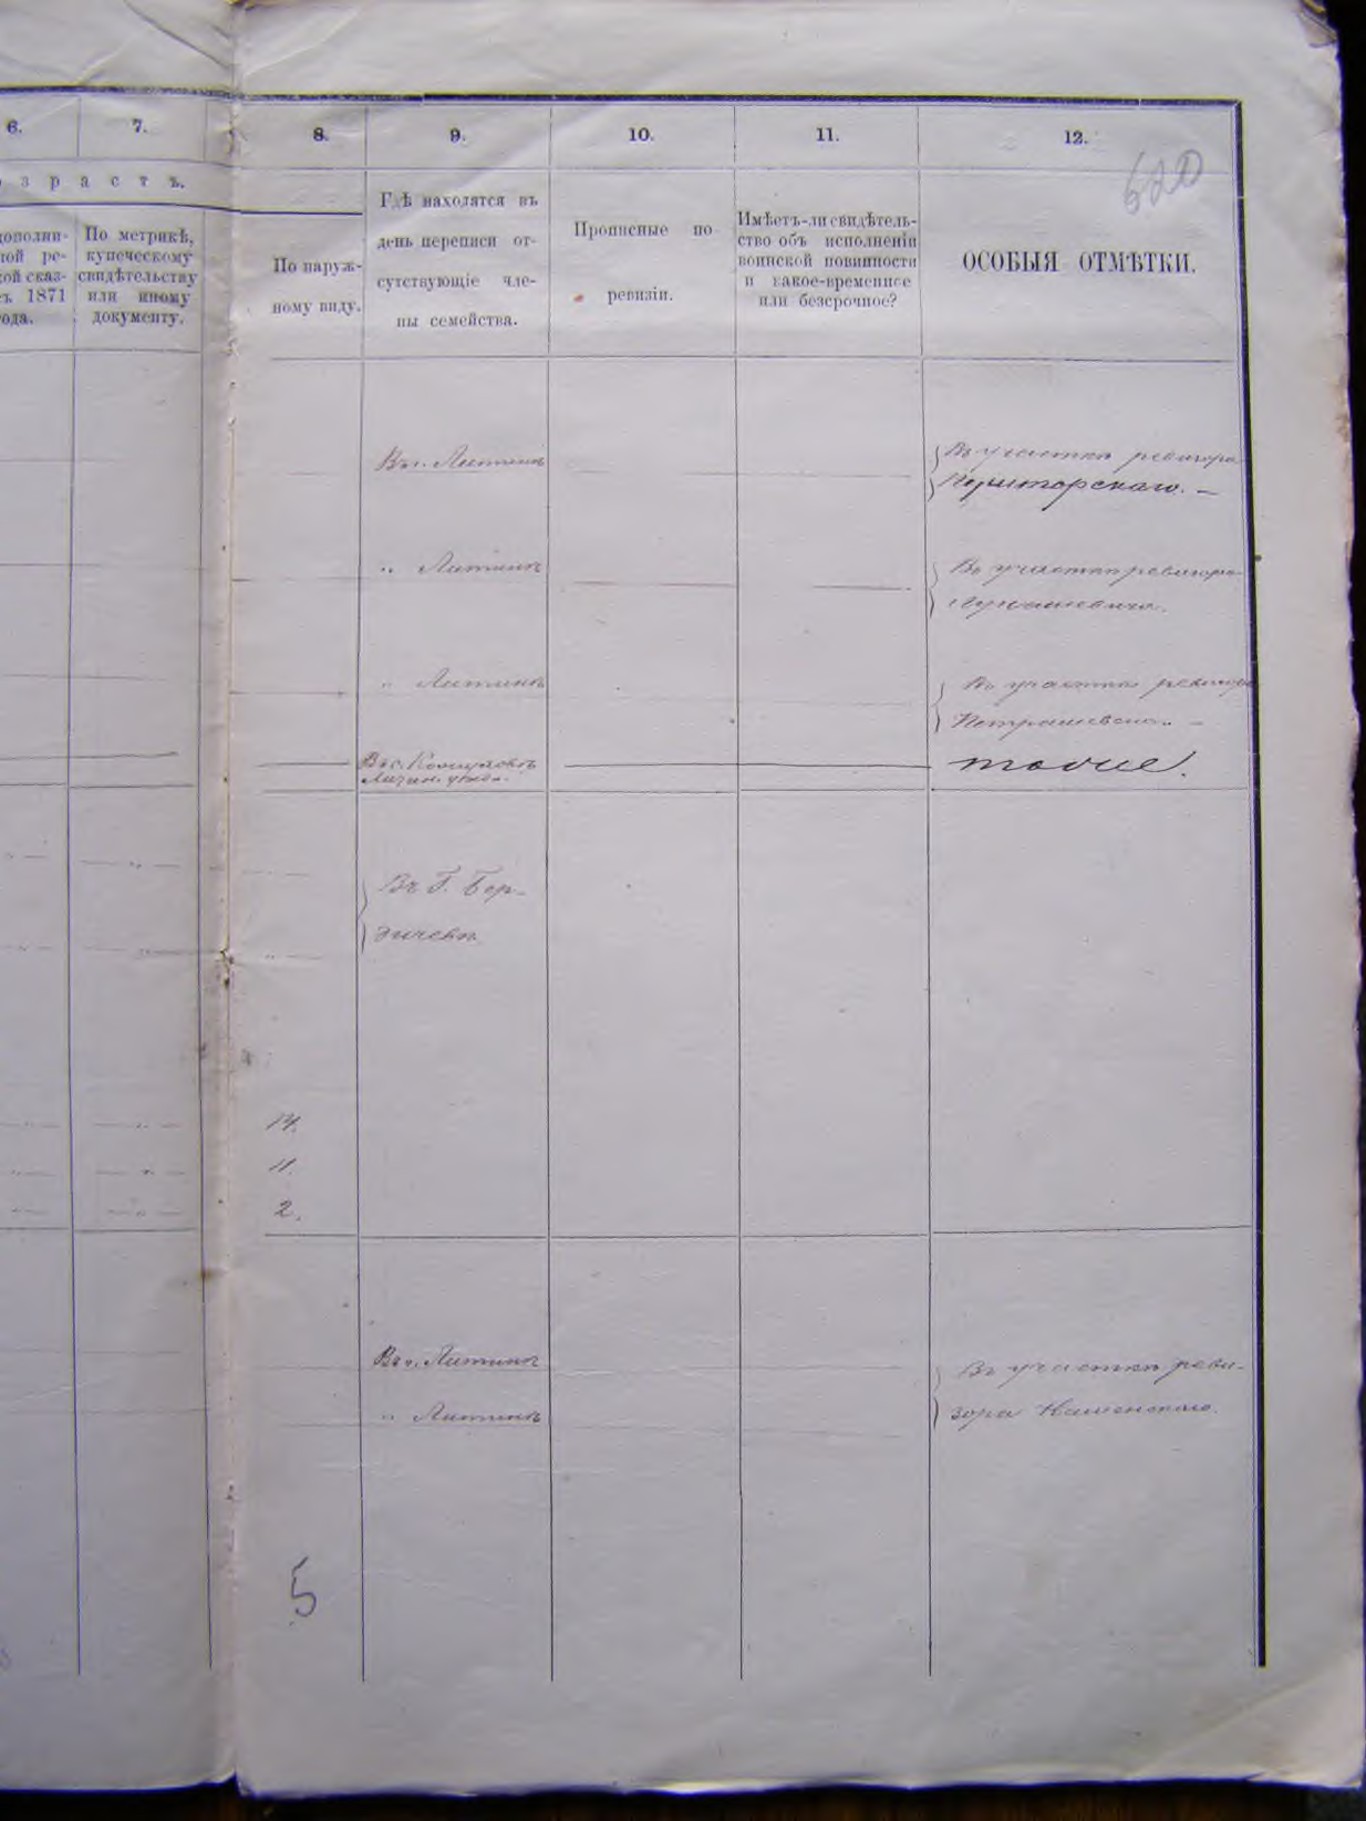 6. 7. 8. 9. 10. 11. 12.
620
з р а с т ъ.
дополни-
ной ре-
кой сказ-
ъ 1871
года.
По метрикѣ,
купеческому
свидѣтельству
или иному
документу.
По наруж-
ному виду.
Гдѣ находятся въ
день переписи от-
сутствующіе чле-
ны семейства.
Прописные по
ревизіи.
Имѣетъ-ли свидѣтель-
ство объ исполненіи
воинской повинности
и какое-временное
или безсрочное?
ОСОБЫЯ ОТМѢТКИ.
Въ г. Литинѣ
Въ участкѣ ревизора
" Литинѣ
Въ участкѣ ревизора
" Литинѣ
Въ участкѣ ревизора
Петрашевскаго. –
Въ с.
Литин. уѣзд.
тоже.
Въ Г. Бер-
дичевѣ
14.
11.
2.
Въ г. Литинѣ
Въ участкѣ реви-
" Литинѣ
зора Каменскаго.
5